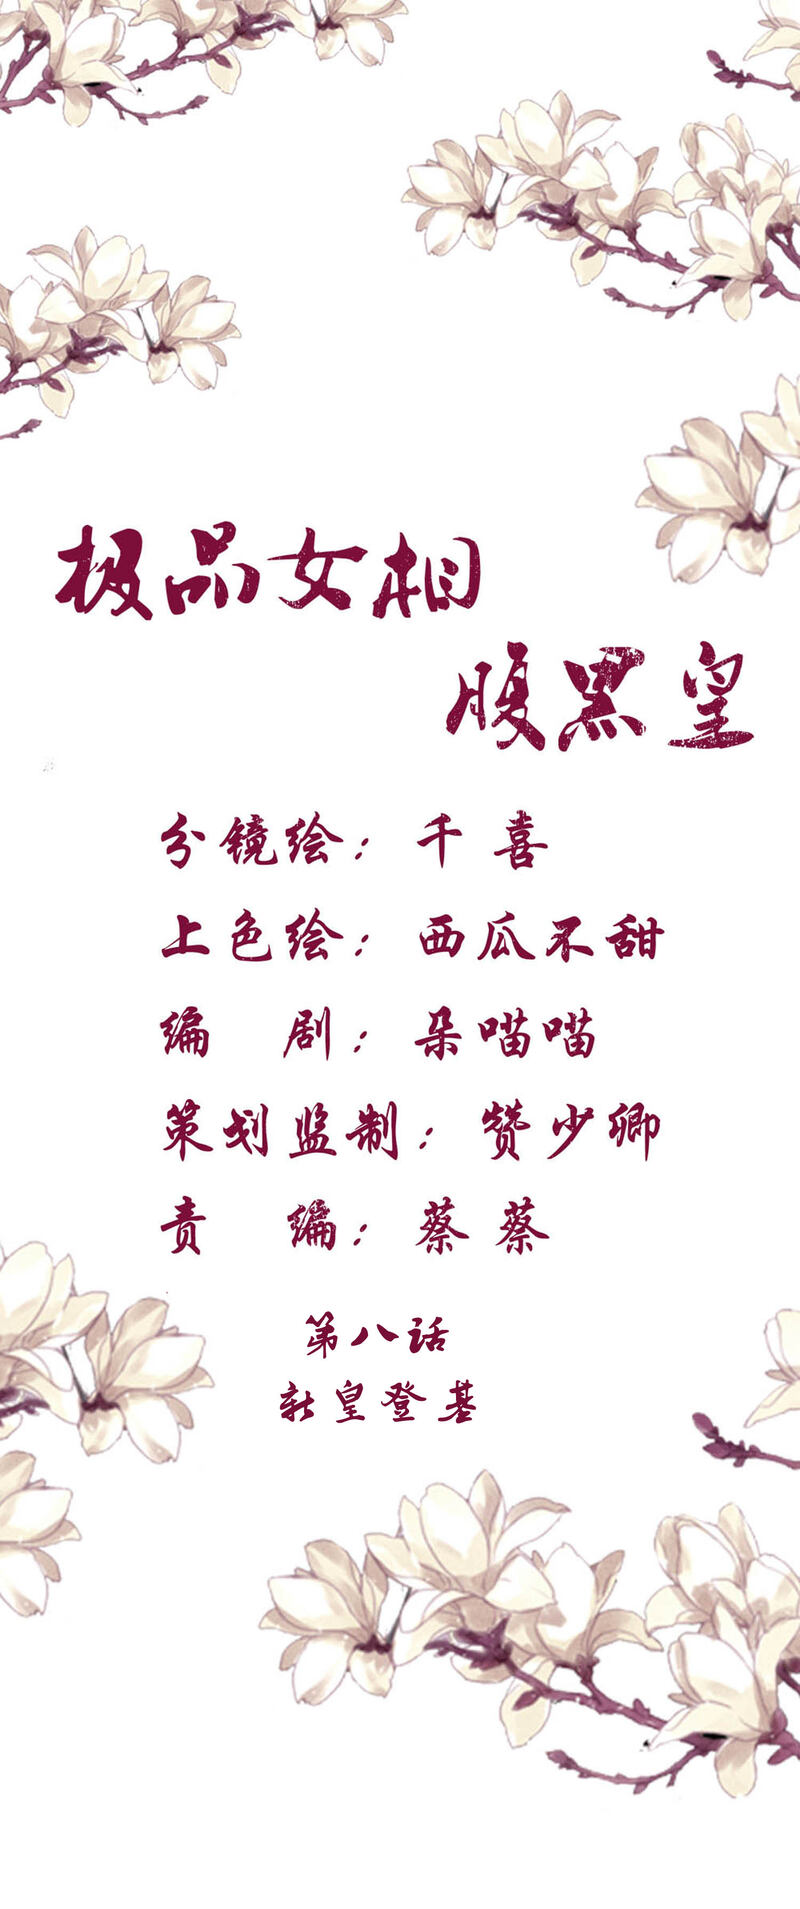 极品女相
腹黑皇
分镜绘：千喜
上色绘：西瓜不甜
编 剧：朵喵喵
策划监制：赞少卿
责 编：蔡蔡
第八话
新皇登基